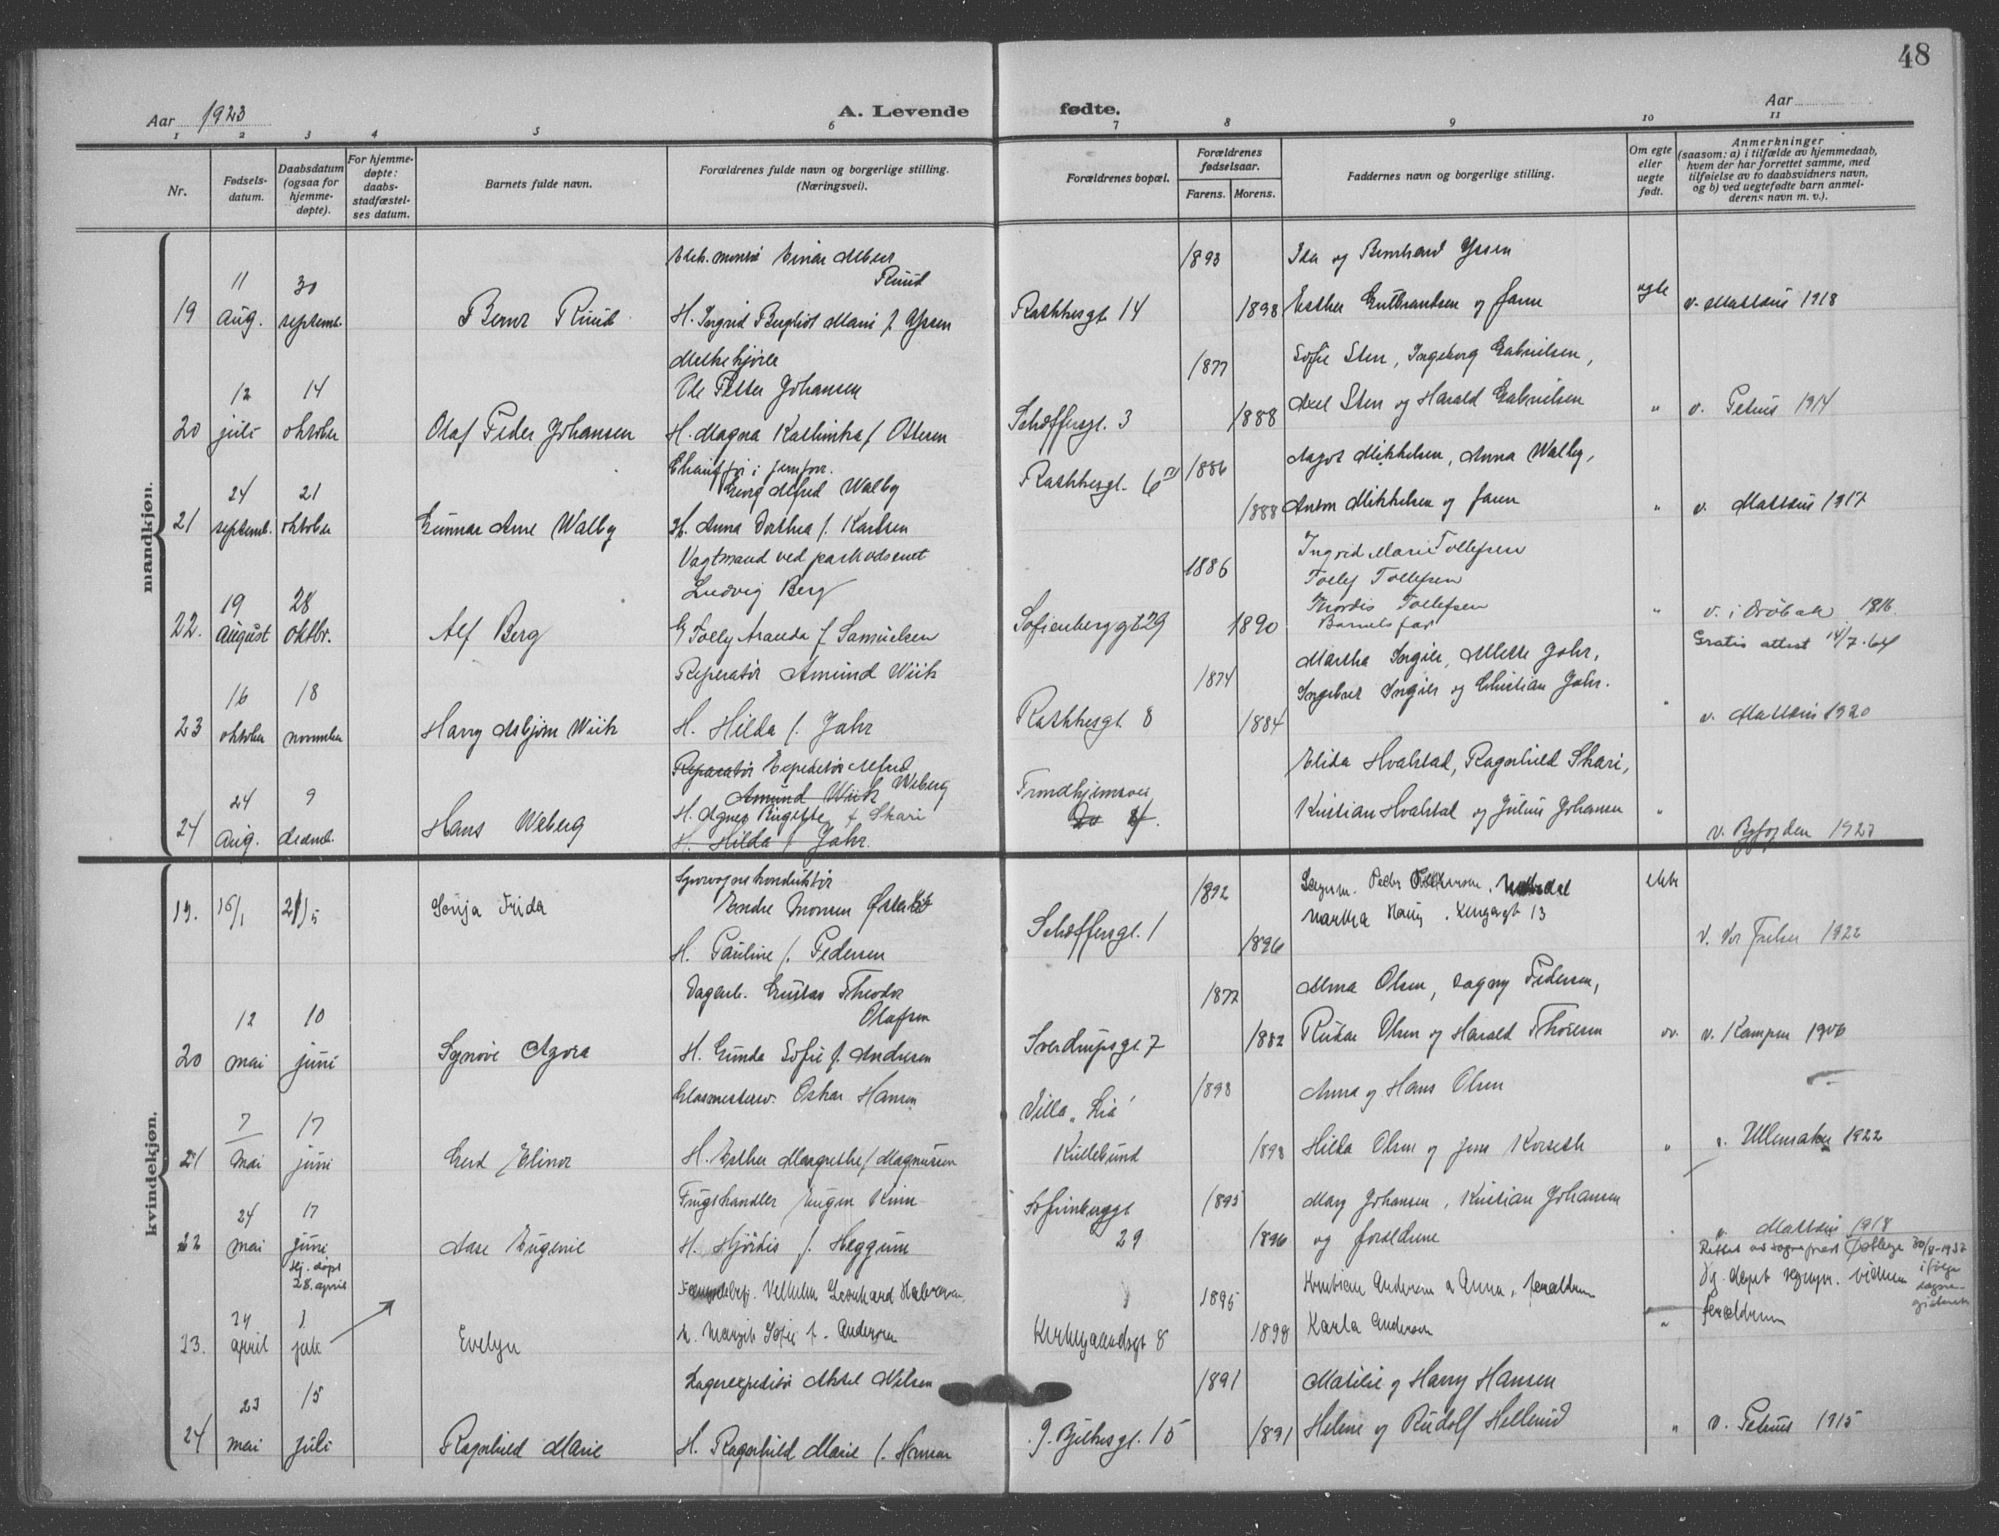 48
Aar 1923
A. Levende fødte.
Aar
1 2 3 4 5 6 7 8 9 10 11
Nr.
Fødsels-
datum.
Daabsdatum
(ogsaa for
hjemme-
døpte).
For hjemme-
døpte:
daabs-
stadfæstel-
ses datum.
Barnets fulde navn.
Forældrenes fulde navn og borgerlige stilling.
(Næringsvei).
Forældrenes bopæl.
Forældrenes
fødselsaar.
Farens. Morens.
Faddernes navn og borgerlige stilling.
Om egte
eller
uegte
født.
Anmerkninger
(saasom: a) i tilfælde av hjemmedaab,
hvem der har forrettet samme, med
tilføielse av to daabsvidners navn,
og b) ved uegtefødte barn anmel-
derens navn m. v.).
mandkjøn.
19
11
Aug.
30
septemb.
Ruud
Einar Albert
Ruud
H. Ingrid Bergliot Marie f. Yssen
Rathkesgt. 14
1893
1898
Ida og Bernhard Yssen
Esther Gulbrandsen og faren
egte
v. Mattæus 1918
20
12
juli
14
oktober
Olaf Peder Johansen
Melkekjører
Ole Petter Johansen
H. Magna Kathinka f. Ottesen
Schæffersgt. 3
1877
1888
Sofie Sten, Ingeborg Gabrielsen,
Axel Sten og Harald Gabrielsen
"
v. Petrus 1914
21
24
septemb.
21
oktober
Gunnar Arne Walby
Georg Alfred Walby
H. Anna Dorthea f. Karlsen
Rathkesgt. 6
1886
1888
Aagot Mikkelsen, Anna Walby,
Anton Mikkelsen og faren
"
v. Mattæus 1917
22.
19
August
28
oktbr.
Alf Berg
Vagtmand ved pakhodsenet
Ludvig Berg
Samuelsen
Sofienberggt 29
1886
1890
Ingrid Marie Tollefsen
Tollef Tollefsen
Thordis Tollefsen
Barnets far
"
v. i Drøbak 1916
Gratis attest 14/7-64
23
16
oktober
18
november
Harry Asbjørn Wiik
Reparatør Amund Wiik
H. Hilda f. Jahr
Rathkesgt 8
1874
1884
Martha Ingier, Mette Jahr,
Ingebret Ingier og Christian Jahr.
"
v. Mattæus 1920
24
24
Aug.
9
desemb.
Hans Weberg
Reparatør Expeditør Alfred
Amund Wiik Weberg
H. Agnes Birgitte f Skari
H. Hilda f Jahr.
Trondhjemsvei
Elida Hvalstad, Ragnhild Skari,
Kristian Hvalstad og Julius Johansen
"
v. Byfogden 1923
kvindekjøn.
19.
15/1
21/5
Sonja Frida
Sporvognskonduktør
Endre Monsen
H. Pauline f. Pedersen
Schæffersgt. 1
1892
1896
Martha Haug
ekte
v. Vor Frelser 1922
20
12
mai
10
juni
Synnøve Agora
Dagarb. Gustav Theodor
Olafsen
H. Gunda Sofie f. Andresen
Sverdrupsgt 7
1877
1882
Alma Olsen, Dagny Pedersen,
Olsen og Harald Thoresen
v. Kampen 1906
21
7
mai
17
juni
Gerd Elinor
Glasmestersv. Oskar Hansen
H. Esther Margrethe f Magnussen
Villa "Lia"
Kullebund
1893
1898
Anna og Hans Olsen
Hilda Olsen og Jens Korseth
"
v. Ullensaker 1922
22
24
mai
17
juni
Aase Eugenie
Eugen Kinn
H. Hjördis f. Heggum
Sofienberggt
29
1895
1896
Mary Johansen, Kristian Johansen
og forældrene
v. Mattæus 1918
23.
24
april
Hj. døpt
28. april
1
juli
Evelyn
Vilhelm Leonhard Halvorsen.
h. Margit Sofie f. Andersen
Kirkegaardsgt 8
1895
1898
Kristian Andersen & Anna, foreldrene
Karla Andersen
"
foreldrene
24
23
mai
15
juli
Ragnhild Marie
Lagerexpeditør Aksel Nilsen
H. Ragnhild Marie f. Hansen
g. Bjelkesgt. 15
1891
1891
Matilie og Harry Hansen
Helene og Rudolf Hellerud
"
v. Petrus 1915